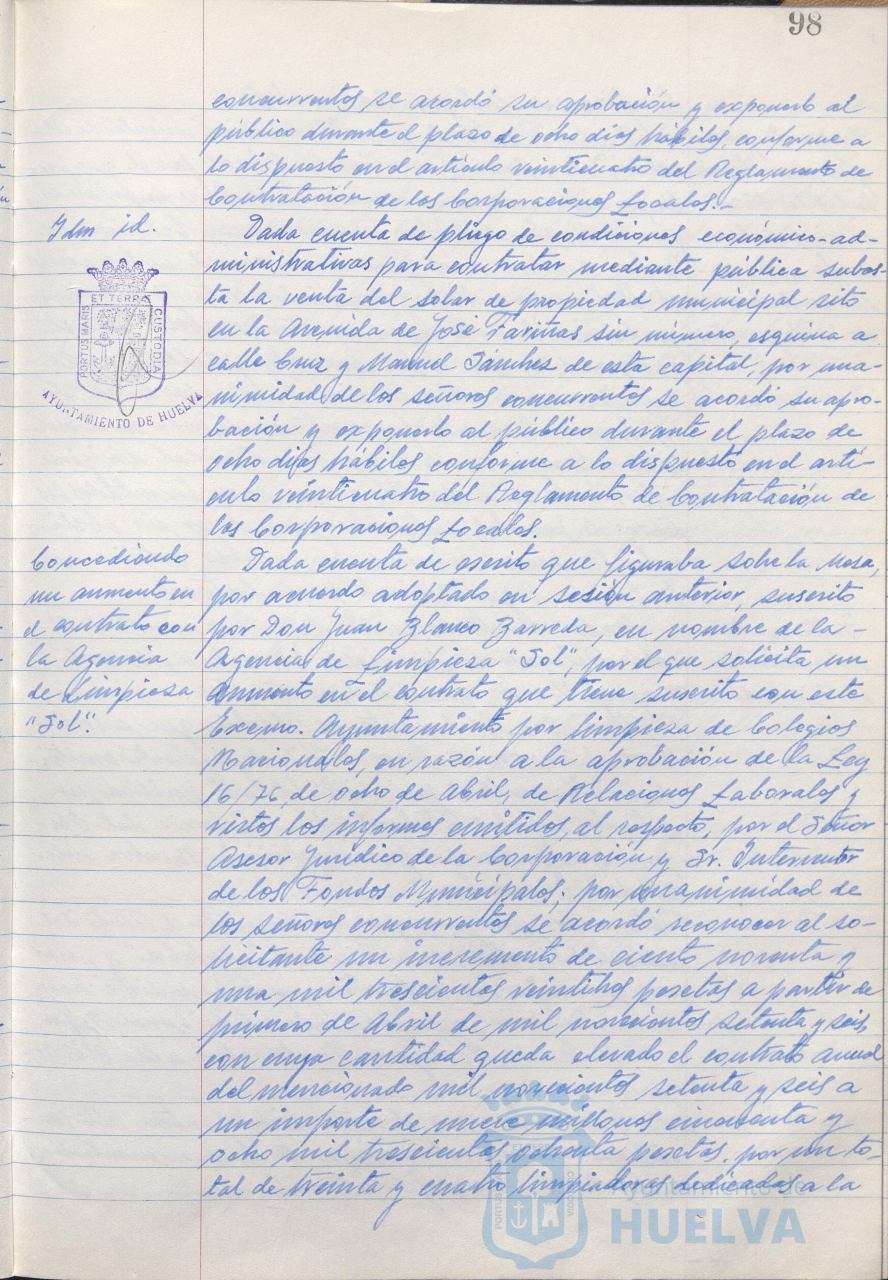 98
concurrentes se acordó su aprobación y exponerlo al
público durante el plazo de ocho días hábiles, conforme a
lo dispuesto en el artículo veinticuatro del Reglamento de
Contratación de las Corporaciones Locales.-
Idm id.
Dada cuenta de pliego de condiciones económico-ad-
ministrativas para contratar mediante pública subas-
ta la venta del solar de propiedad municipal sito
en la Avenida de José Fariñas sin número, esquina a
calle Cruz y Manuel Sánchez de esta capital, por una-
nimidad de los señores concurrentes se acordó su apro-
bación y exponerlo al público durante el plazo de
ocho días hábiles conforme a lo dispuesto en el artí-
culo veinticuatro del Reglamento de Contratación de
las Corporaciones Locales.
ET TERRA
PORTUS MARIS
CUSTODIA
AYUNTAMIENTO DE HUELVA
Concediendo
un aumento en
el contrato con
la Agencia
de Limpieza
"Sol".
Dada cuenta de escrito que figuraba sobre la Mesa,
por acuerdo adoptado en sesión anterior, suscrito
por Don Juan Blanco Barreda, en nombre de la -
Agencia de Limpieza "Sol", por el que solicita un
aumento en el contrato que tiene suscrito con este
Excmo. Ayuntamiento por limpieza de Colegios
Nacionales, en razón a la aprobación de la Ley
16/76, de ocho de Abril, de Relaciones Laborales y
vistos los informes emitidos, al respecto, por el Señor
Asesor Jurídico de la Corporación y Sr. Interventor
de los Fondos Municipales; por unanimidad de
los señores concurrentes se acordó reconocer al so-
licitante un incremento de ciento noventa y
una mil trescientas veintitres pesetas a partir de
primero de Abril de mil novecientos setenta y seis,
con cuya cantidad queda elevado el contrato anual
del mencionado mil novecientos setenta y seis a
un importe de nueve millones cincuenta y
ocho mil trescientas ochenta pesetas, por un to-
tal de treinta y cuatro limpiadoras dedicadas a la
PORTUS MARIS
CUSTODIA
Ayuntamiento de
HUELVA